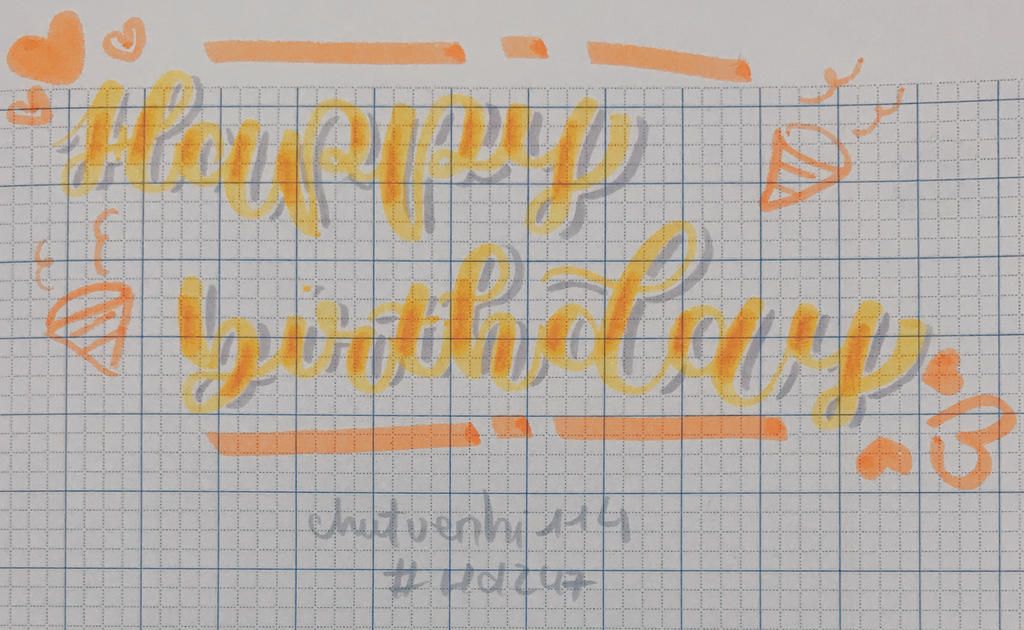 Happy
birthday
chutvenhi 114
#Hd247